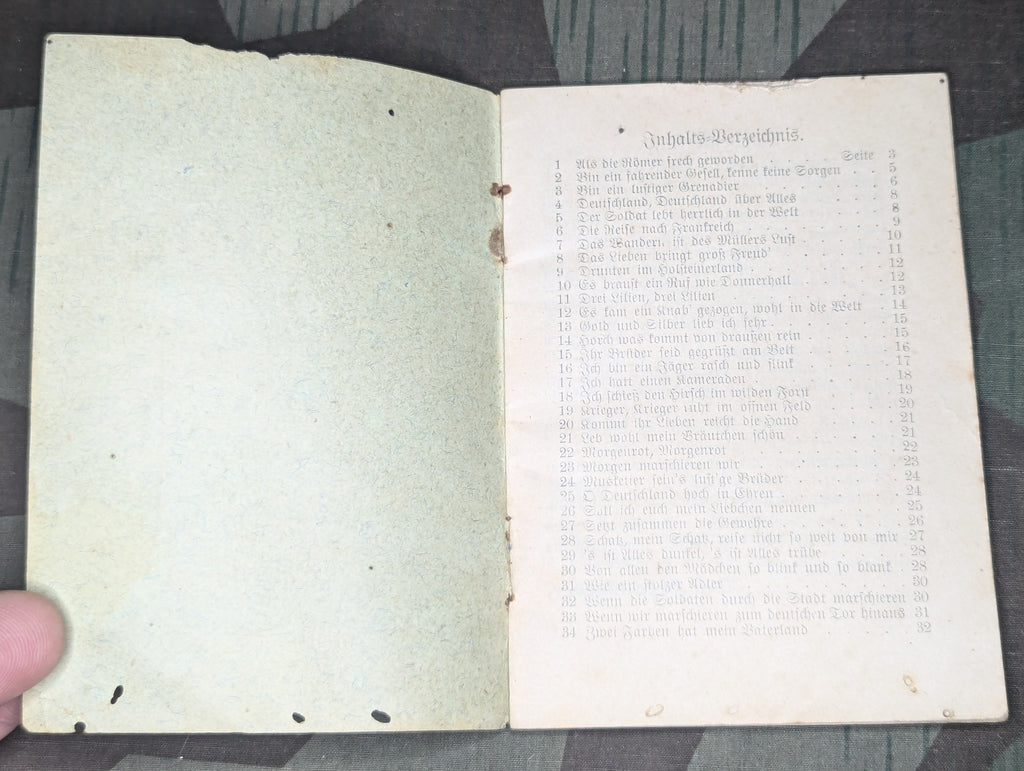 Inhalts-Verzeichnis.
1 Als die Römer frech geworden . . . . Seite 3
2 Bin ein fahrender Gesell, kenne keine Sorgen . . 5
3 Bin ein lustiger Grenadier . . . . . . 6
4 Deutschland, Deutschland über Alles . . . 8
5 Der Soldat lebt herrlich in der Welt . . . 8
6 Die Reise nach Frankreich . . . . . . 9
7 Das Wandern ist des Müllers Lust . . . . 10
8 Das Lieben bringt groß Freud' . . . . . 11
9 Drunten im Holsteinerland . . . . . . 12
10 Es braust ein Ruf wie Donnerhall . . . . 12
11 Drei Lilien, drei Lilien . . . . . . . 13
12 Es kam ein Knab' gezogen, wohl in die Welt . 14
13 Gold und Silber lieb ich sehr . . . . . . 15
14 Horch was kommt von draußen rein . . . . 15
15 Ihr Brüder seid gegrüßt am Belt . . . . 16
16 Ich bin ein Jäger rasch und flink . . . . 17
17 Ich hatt einen Kameraden . . . . . . 18
18 Ich schieß den Hirsch im wilden Forst . . . 19
19 Krieger, Krieger ruht im öffnen Feld . . . 20
20 Kommt ihr Lieben reicht die Hand . . . . 21
21 Leb wohl mein Bräutchen schön . . . . . 21
22 Morgenrot, Morgenrot . . . . . . . 22
23 Morgen marschieren wir . . . . . . . 23
24 Musketier sein's lust'ge Brüder . . . . . 24
25 O Deutschland hoch in Ehren . . . . . . 24
26 Soll ich euch mein Liebchen nennen . . . . 25
27 Setzt zusammen die Gewehre . . . . . . 26
28 Schatz, mein Schatz, reise nicht so weit von mir 27
29 's ist Alles dunkel, 's ist Alles trübe . . . . 28
30 Von allen den Mädchen so blink und so blank . 28
31 Wie ein stolzer Adler . . . . . . . . 30
32 Wenn die Soldaten durch die Stadt marschieren 30
33 Wenn wir marschieren zum deutschen Tor hinaus 31
34 Zwei Farben hat mein Vaterland . . . . . 32